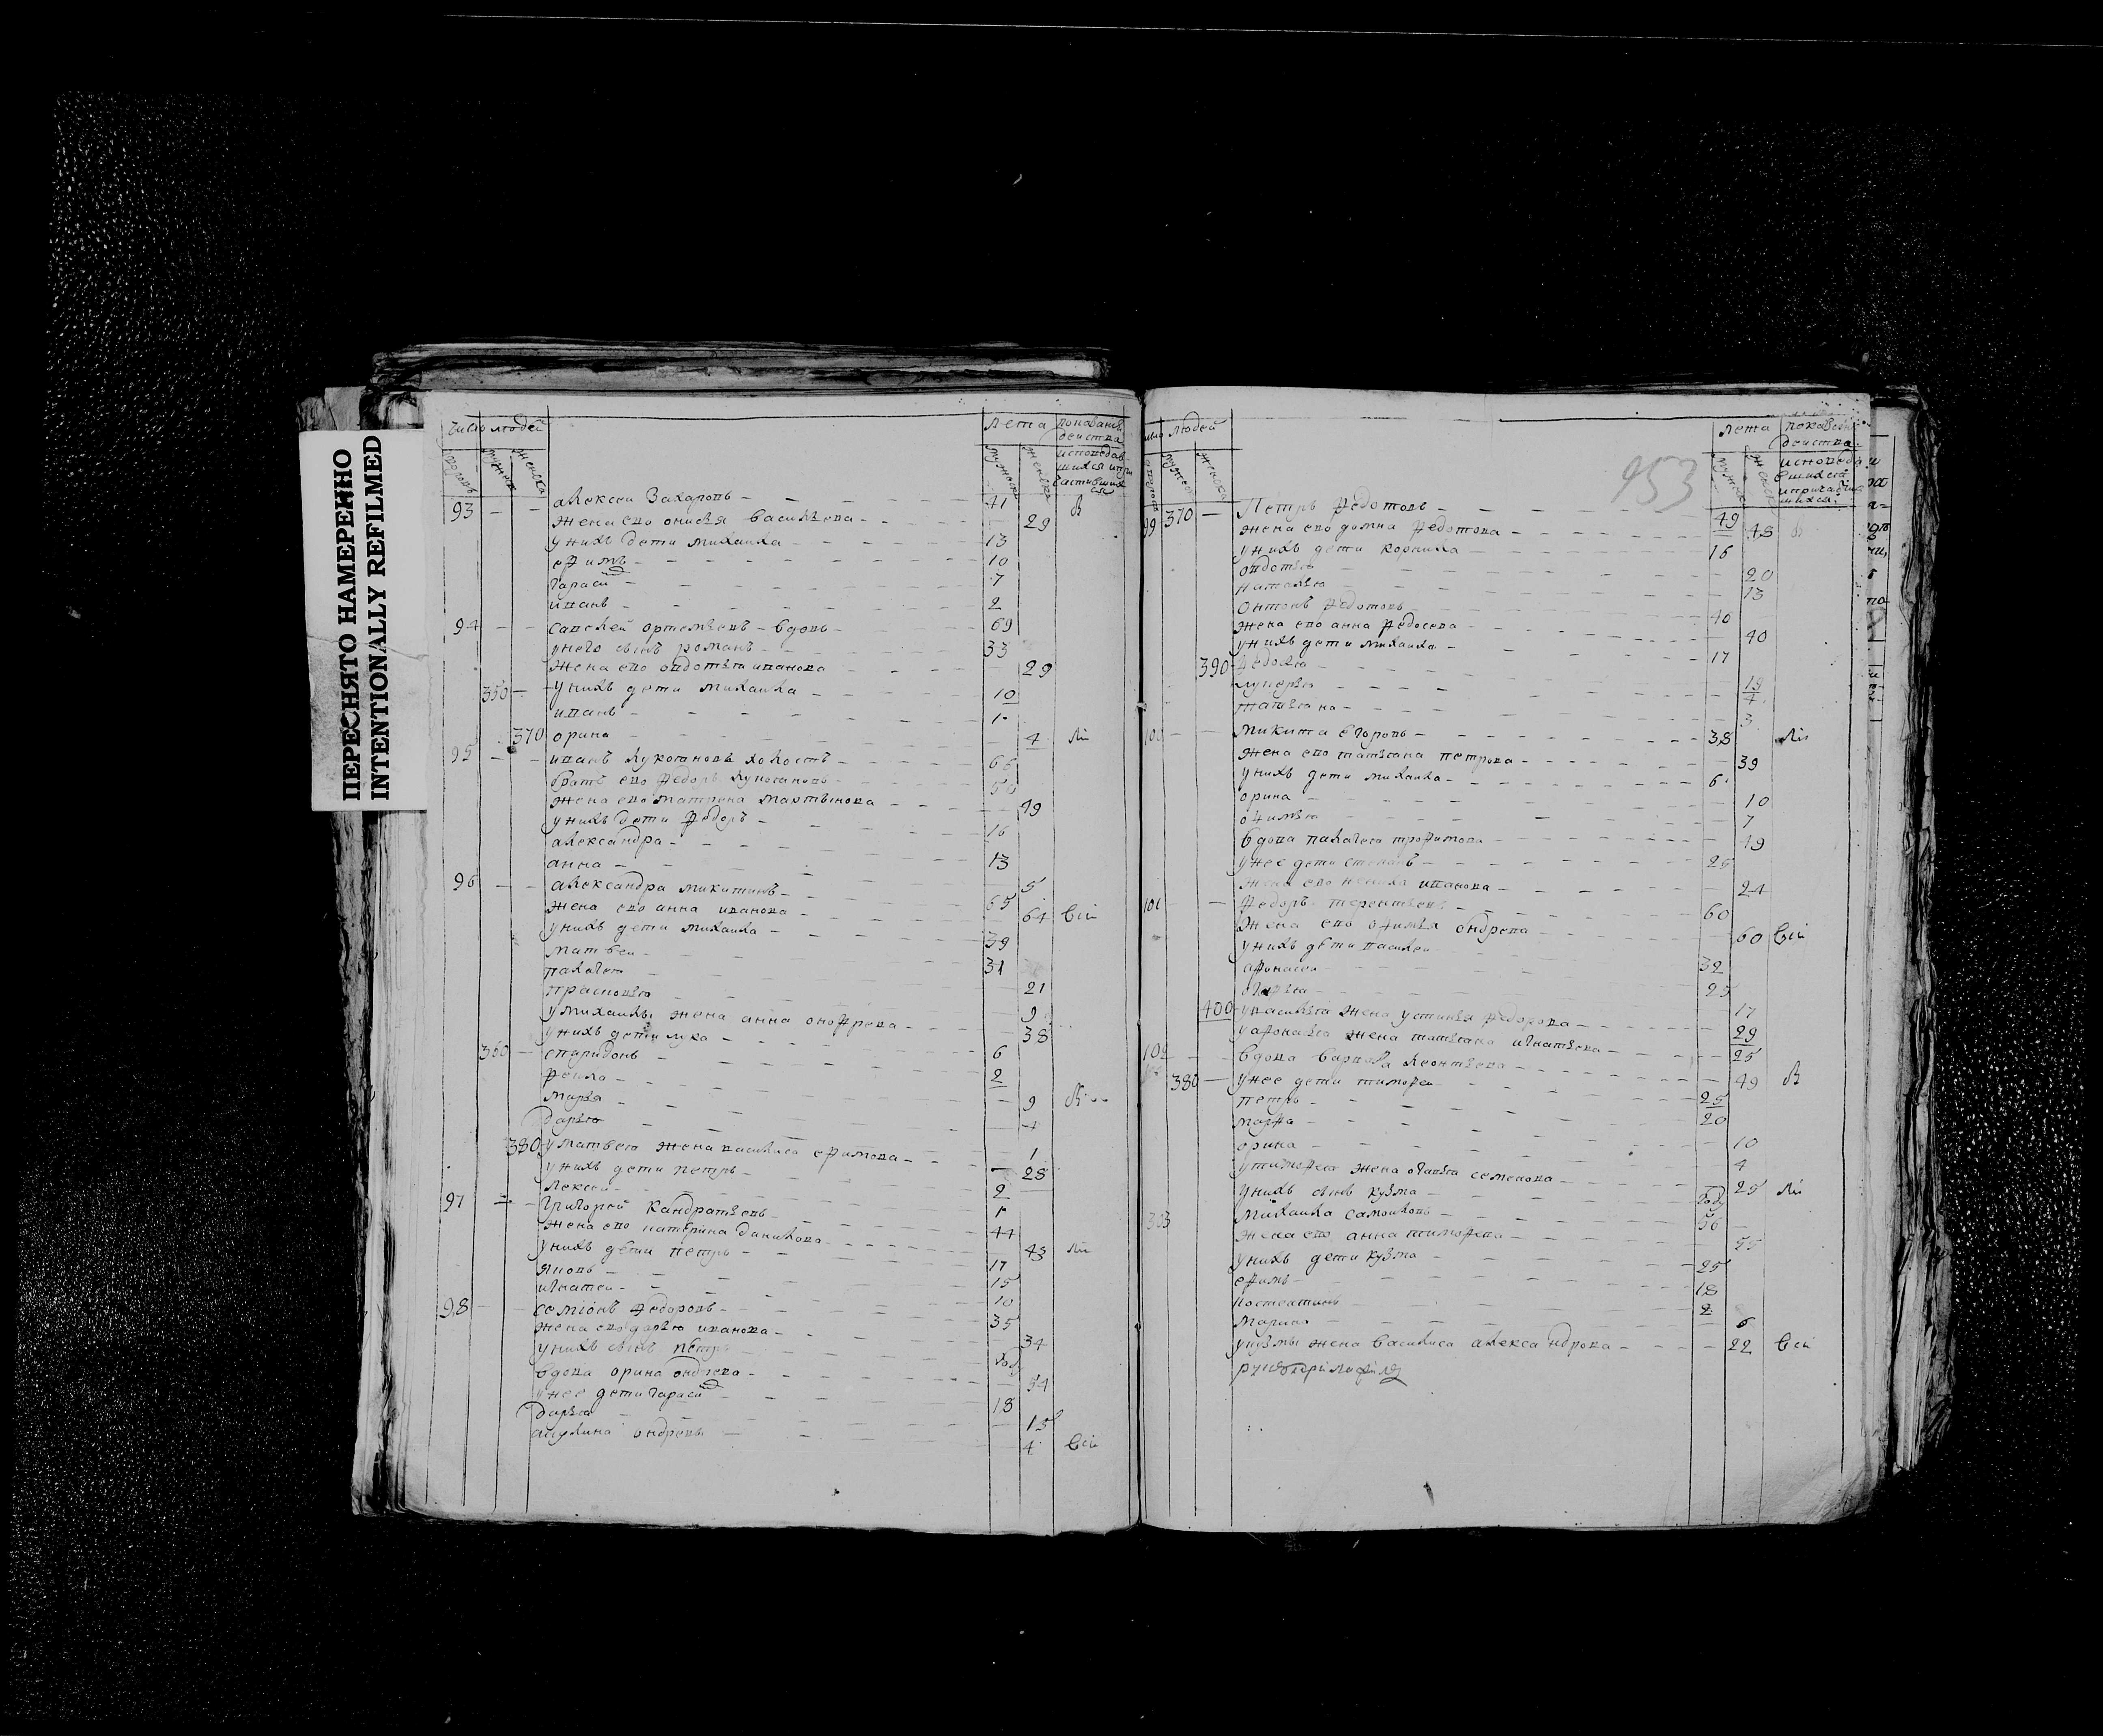 ПЕРЕСНЯТО НАМЕРЕННО
INTENTIONALLY REFILMED
число людей
лета
дворовъ
мужеска
женска
мужеска
женска
93 алексеи Захаровъ 41
жена ево онисья васильева 29
у нихъ дети михаила 13
ефимъ 10
гараси 7
иванъ 2
94 савелей ортемьевъ вдовъ 69
у него сынъ романъ 33
жена ево овдотья иванова 29
350 у нихъ дети михаила 10
иванъ 1
370 орина 4
95 иванъ лукояновъ холостъ
братъ ево федоръ лукояновъ
жена ево матрена мартынова 49
у нихъ дети федоръ 16
александра 13
анна 5
96 александра микитинъ 65
жена ево анна иванова 64
у нихъ дети михаила 39
матвеи 31
палагея 21
прасковья 9
у михаилы жена анна онофрева 38
у нихъ дети лука 6
360 спиридонъ 2
фекла 9
марья
дарья 1
380 у матвея жена василиса ефимова 28
у нихъ дети петръ 2
лексеи 1
97 григорей кандратьевъ 44
жена ево катерина данилова 43
у нихъ дети петръ 17
яковъ 15
игнатеи 10
98 семионъ федоровъ 35
жена ево дарья иванова 34
у нихъ сынъ петръ
вдова орина ондреева 54
у нее дети гараси 18
дарья 15
акулина ондреева 4
людей
лета
953
99 370 Петръ федотовъ 49
жена ево домна федотова 48
у нихъ дети корнила 16
овдотья 20
наталья 13
онтонъ федотовъ 40
жена ево анна федосева 40
у нихъ дети михаила 17
390 федосья 19
лукерья 4
татьяна 3
100 микита егоровъ 38
жена ево татьяна петрова 39
у нихъ дети михаила 6
орина 10
офимья 7
вдова палагея трофимова 49
у нее дети степанъ 26
жена ево иванова 24
101 федоръ терентьевъ 60
жена ево офимья ондрева 60
у нихъ дети василеи 32
афонасеи 25
17
400 у василья жена устинья федорова 29
у афонасья жена татьяна игнатьева 25
102 вдова варвара леонтьева 49
380 у нее дети тимофеи 25
петръ 20
марфа 10
орина 4
у тимофея жена агафья семенова 25
у нихъ сынъ кузма
михаила самоиловъ 56
жена ево анна тимофева 55
у нихъ дети кузма 25
ефимъ 18
костентинъ 2
марья 6
у кузмы жена василиса александрова 22